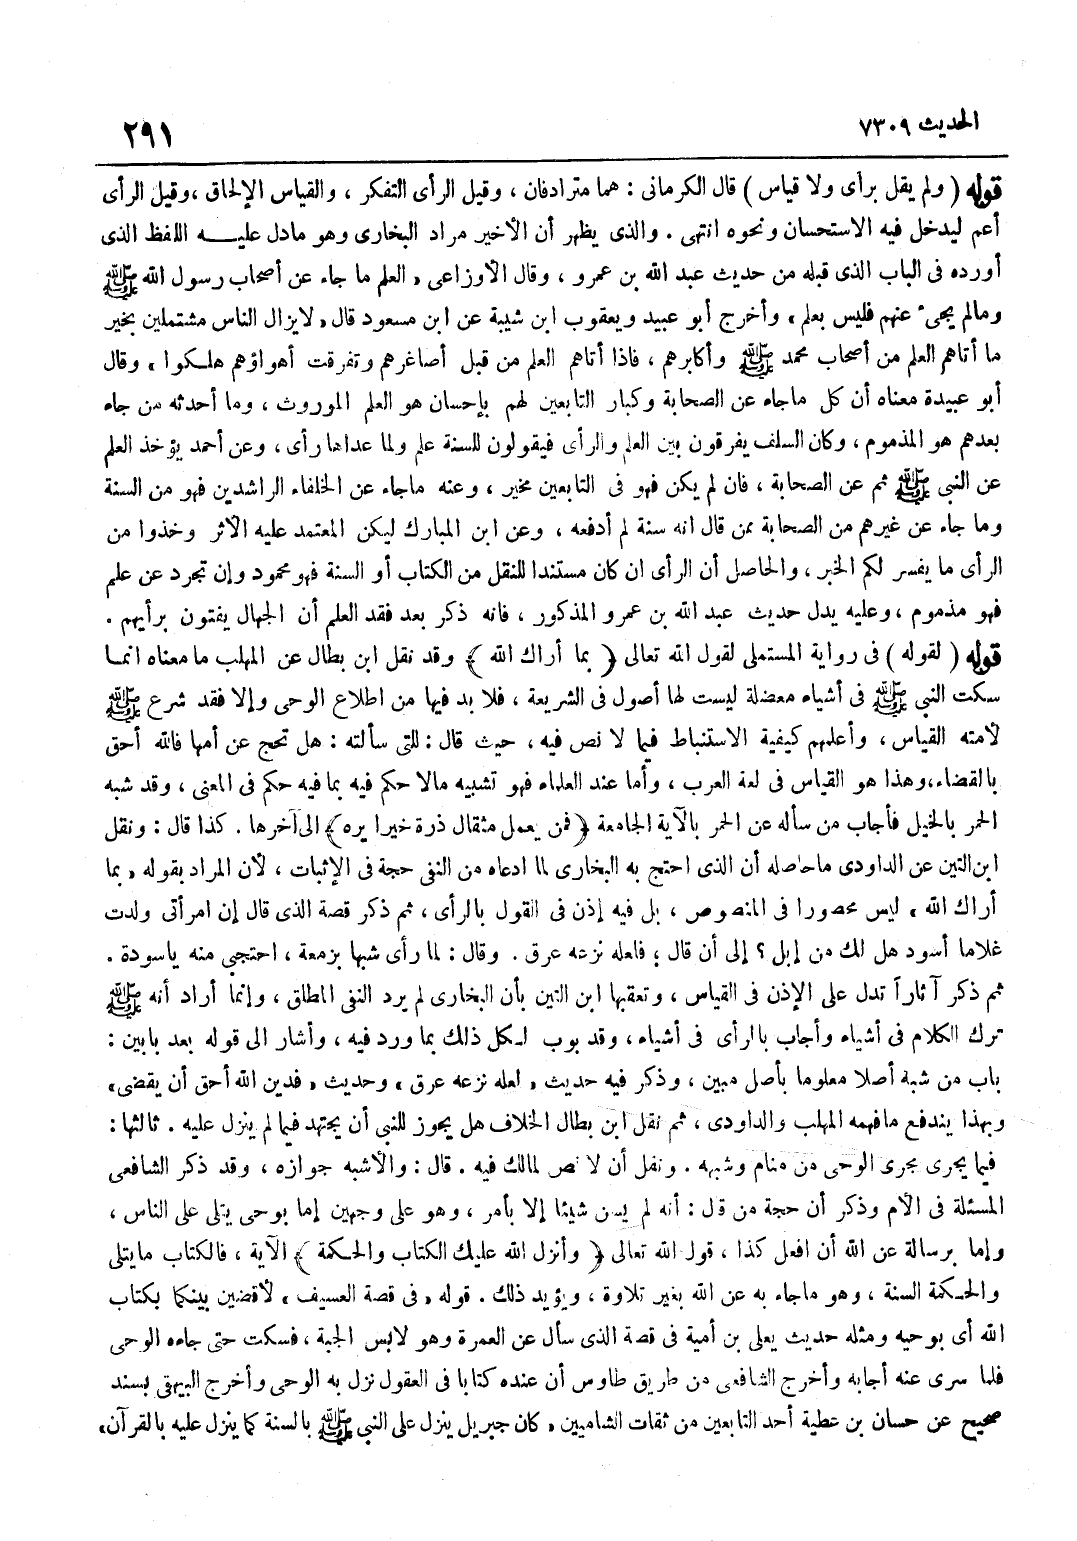 الحديث ٧٣٠٩
٢٩١
قوله ( ولم يقل برأى ولا قياس ) قال الكرمانى : هما مترادفان ، وقيل الرأى التفكر ، والقياس الإلحاق ،وقيل الرأى
أعم ليدخل فيه الاستحسان ونحوه انتهى . والذى يظهر أن الأخير مراد البخارى وهو مادل عليه اللفظ الذى
أورده فى الباب الذى قبله من حديث عبد الله بن عمرو ، وقال الأوزاعى « العلم ما جاء عن أصحاب رسول الله ﷺ
ومالم يجىء عنهم فليس بعلم » وأخرج أبو عبيد ويعقوب ابن شيبة عن ابن مسعود قال « لايزال الناس مشتملين بخير
ما أتاهم العلم من أصحاب محمد ﷺ وأكابرهم ، فاذا أتاهم العلم من قبل أصاغرهم وتفرقت أهواؤهم هلكوا » وقال
أبو عبيدة معناه أن كل ماجاء عن الصحابة وكبار التابعين لهم بإحسان هو العلم الموروث ، وما أحدثه من جاء
بعدهم هو المذموم ، وكان السلف يفرقون بين العلم والرأى فيقولون للسنة علم ولما عداها رأى ، وعن أحمد يؤخذ العلم
عن النبى ﷺ ثم عن الصحابة ، فان لم يكن فهو فى التابعين مخير ، وعنه ماجاء عن الخلفاء الراشدين فهو من السنة
وما جاء عن غيرهم من الصحابة ممن قال انه سنة لم أدفعه ، وعن ابن المبارك ليكن المعتمد عليه الأثر وخذوا من
الرأى ما يفسر لكم الخبر ، والحاصل أن الرأى ان كان مستندا للنقل من الكتاب أو السنة فهو محمود وإن تجرد عن علم
فهو مذموم ، وعليه يدل حديث عبد الله بن عمرو المذكور ، فانه ذكر بعد فقد العلم أن الجهال يفتون برأيهم .
قوله ( لقوله ) فى رواية المستملى لقول الله تعالى ﴿ بما أراك الله ﴾ وقد نقل ابن بطال عن المهلب ما معناه انما
سكت النبى ﷺ فى أشياء معضلة ليست لها أصول فى الشريعة ، فلا بد فيها من اطلاع الوحى وإلا فقد شرع ﷺ
لأمته القياس ، وأعلمهم كيفية الاستنباط فيما لا نص فيه ، حيث قال : للتى سألته : هل تحج عن أمها فالله أحق
بالقضاء،وهذا هو القياس فى لغة العرب ، وأما عند العلماء فهو تشبيه مالا حكم فيه بما فيه حكم فى المعنى ، وقد شبه
الحمر بالخيل فأجاب من سأله عن الحمر بالآية الجامعة ﴿ فمن يعمل مثقال ذرة خيرا يره﴾ الى آخرها . كذا قال : ونقل
ابن التين عن الداودى ما حاصله أن الذى احتج به البخارى لما ادعاه من النفى حجة فى الإثبات ، لأن المراد بقوله « بما
أراك الله » ليس محصورا فى المنصوص ، بل فيه إذن فى القول بالرأى ، ثم ذكر قصة الذى قال إن امرأتى ولدت
غلاما أسود هل لك من إبل ؟ إلى أن قال ؛ فلعله نزعه عرق . وقال : لما رأى شبها بزمعة ، احتجبى منه ياسودة .
ثم ذكر آثاراً تدل على الإذن فى القياس ، وتعقبها ابن التين بأن البخارى لم يرد النفى المطلق ، وإنما أراد أنه ﷺ
ترك الكلام فى أشياء وأجاب بالرأى فى أشياء ، وقد بوب لكل ذلك بما ورد فيه ، وأشار الى قوله بعد بابين :
باب من شبه أصلا معلوما بأصل مبين ، وذكر فيه حديث « لعله نزعه عرق » وحديث « فدين الله أحق أن يقضى»
وبهذا يندفع مافهمه المهلب والداودى ، ثم نقل ابن بطال الخلاف هل يجوز للنبى أن يجتهد فيما لم ينزل عليه . ثالثها :
فيما يجرى مجرى الوحى من منام وشبهه . ونقل أن لا نص لمالك فيه . قال : والأشبه جوازه ، وقد ذكر الشافعى
المسئلة فى الأم وذكر أن حجة من قال : أنه لم يسن شيئا إلا بأمر ، وهو على وجهين إما بوحى يتلى على الناس ،
وإما برسالة عن الله أن افعل كذا ، قول الله تعالى ﴿ وأنزل الله عليك الكتاب والحكمة ﴾ الآية ، فالكتاب مايتلى
والحكمة السنة ، وهو ماجاء به عن الله بغير تلاوة ، ويؤيد ذلك . قوله « فى قصة العسيف » لأقضين بينكما بكتاب
الله أى بوحيه ومثله حديث يعلى بن أمية فى قصة الذى سأل عن العمرة وهو لابس الجبة ، فسكت حتى جاءه الوحى
فلما سرى عنه أجابه وأخرج الشافعى من طريق طاوس أن عنده كتابا فى العقول نزل به الوحى وأخرج البيهقى بسند
صحيح عن حسان بن عطية أحد التابعين من ثقات الشاميين « كان جبريل ينزل على النبى ﷺ بالسنة كما ينزل عليه بالقرآن»